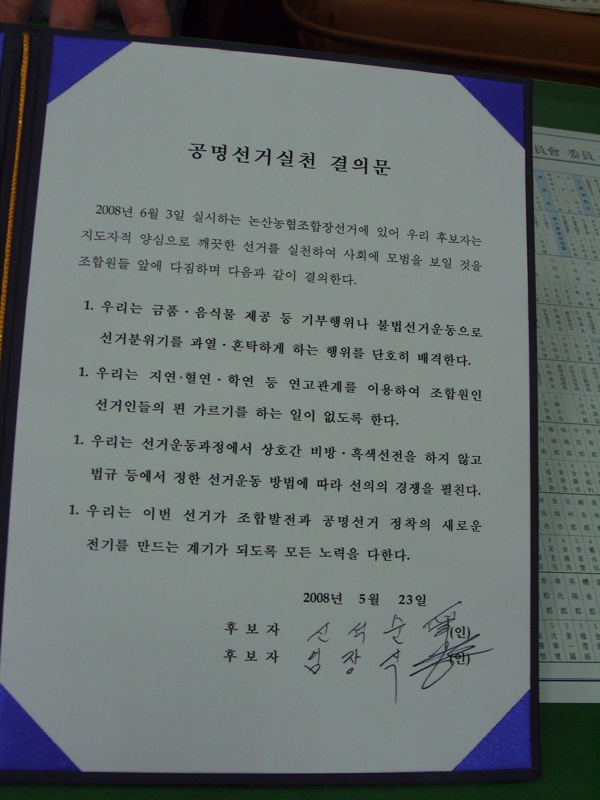 공명선거실천 결의문
2008년 6월 3일 실시하는 논산농협조합장선거에 있어 우리 후보자는
지도자적 양심으로 깨끗한 선거를 실천하여 사회에 모범을 보일 것을
조합원들 앞에 다짐하며 다음과 같이 결의한다.
1. 우리는 금품·음식물 제공 등 기부행위나 불법선거운동으로
선거분위기를 과열·혼탁하게 하는 행위를 단호히 배격한다.
1. 우리는 지연·혈연·학연 등 연고관계를 이용하여 조합원인
선거인들의 편 가르기를 하는 일이 없도록 한다.
1. 우리는 선거운동과정에서 상호간 비방·흑색선전을 하지 않고
법규 등에서 정한 선거운동 방법에 따라 선의의 경쟁을 펼친다.
1. 우리는 이번 선거가 조합발전과 공명선거 정착의 새로운
전기를 만드는 계기가 되도록 모든 노력을 다한다.
2008년 5월 23일
후보자 신석문 (인)
후보자 임장식 (인)
員會 委員